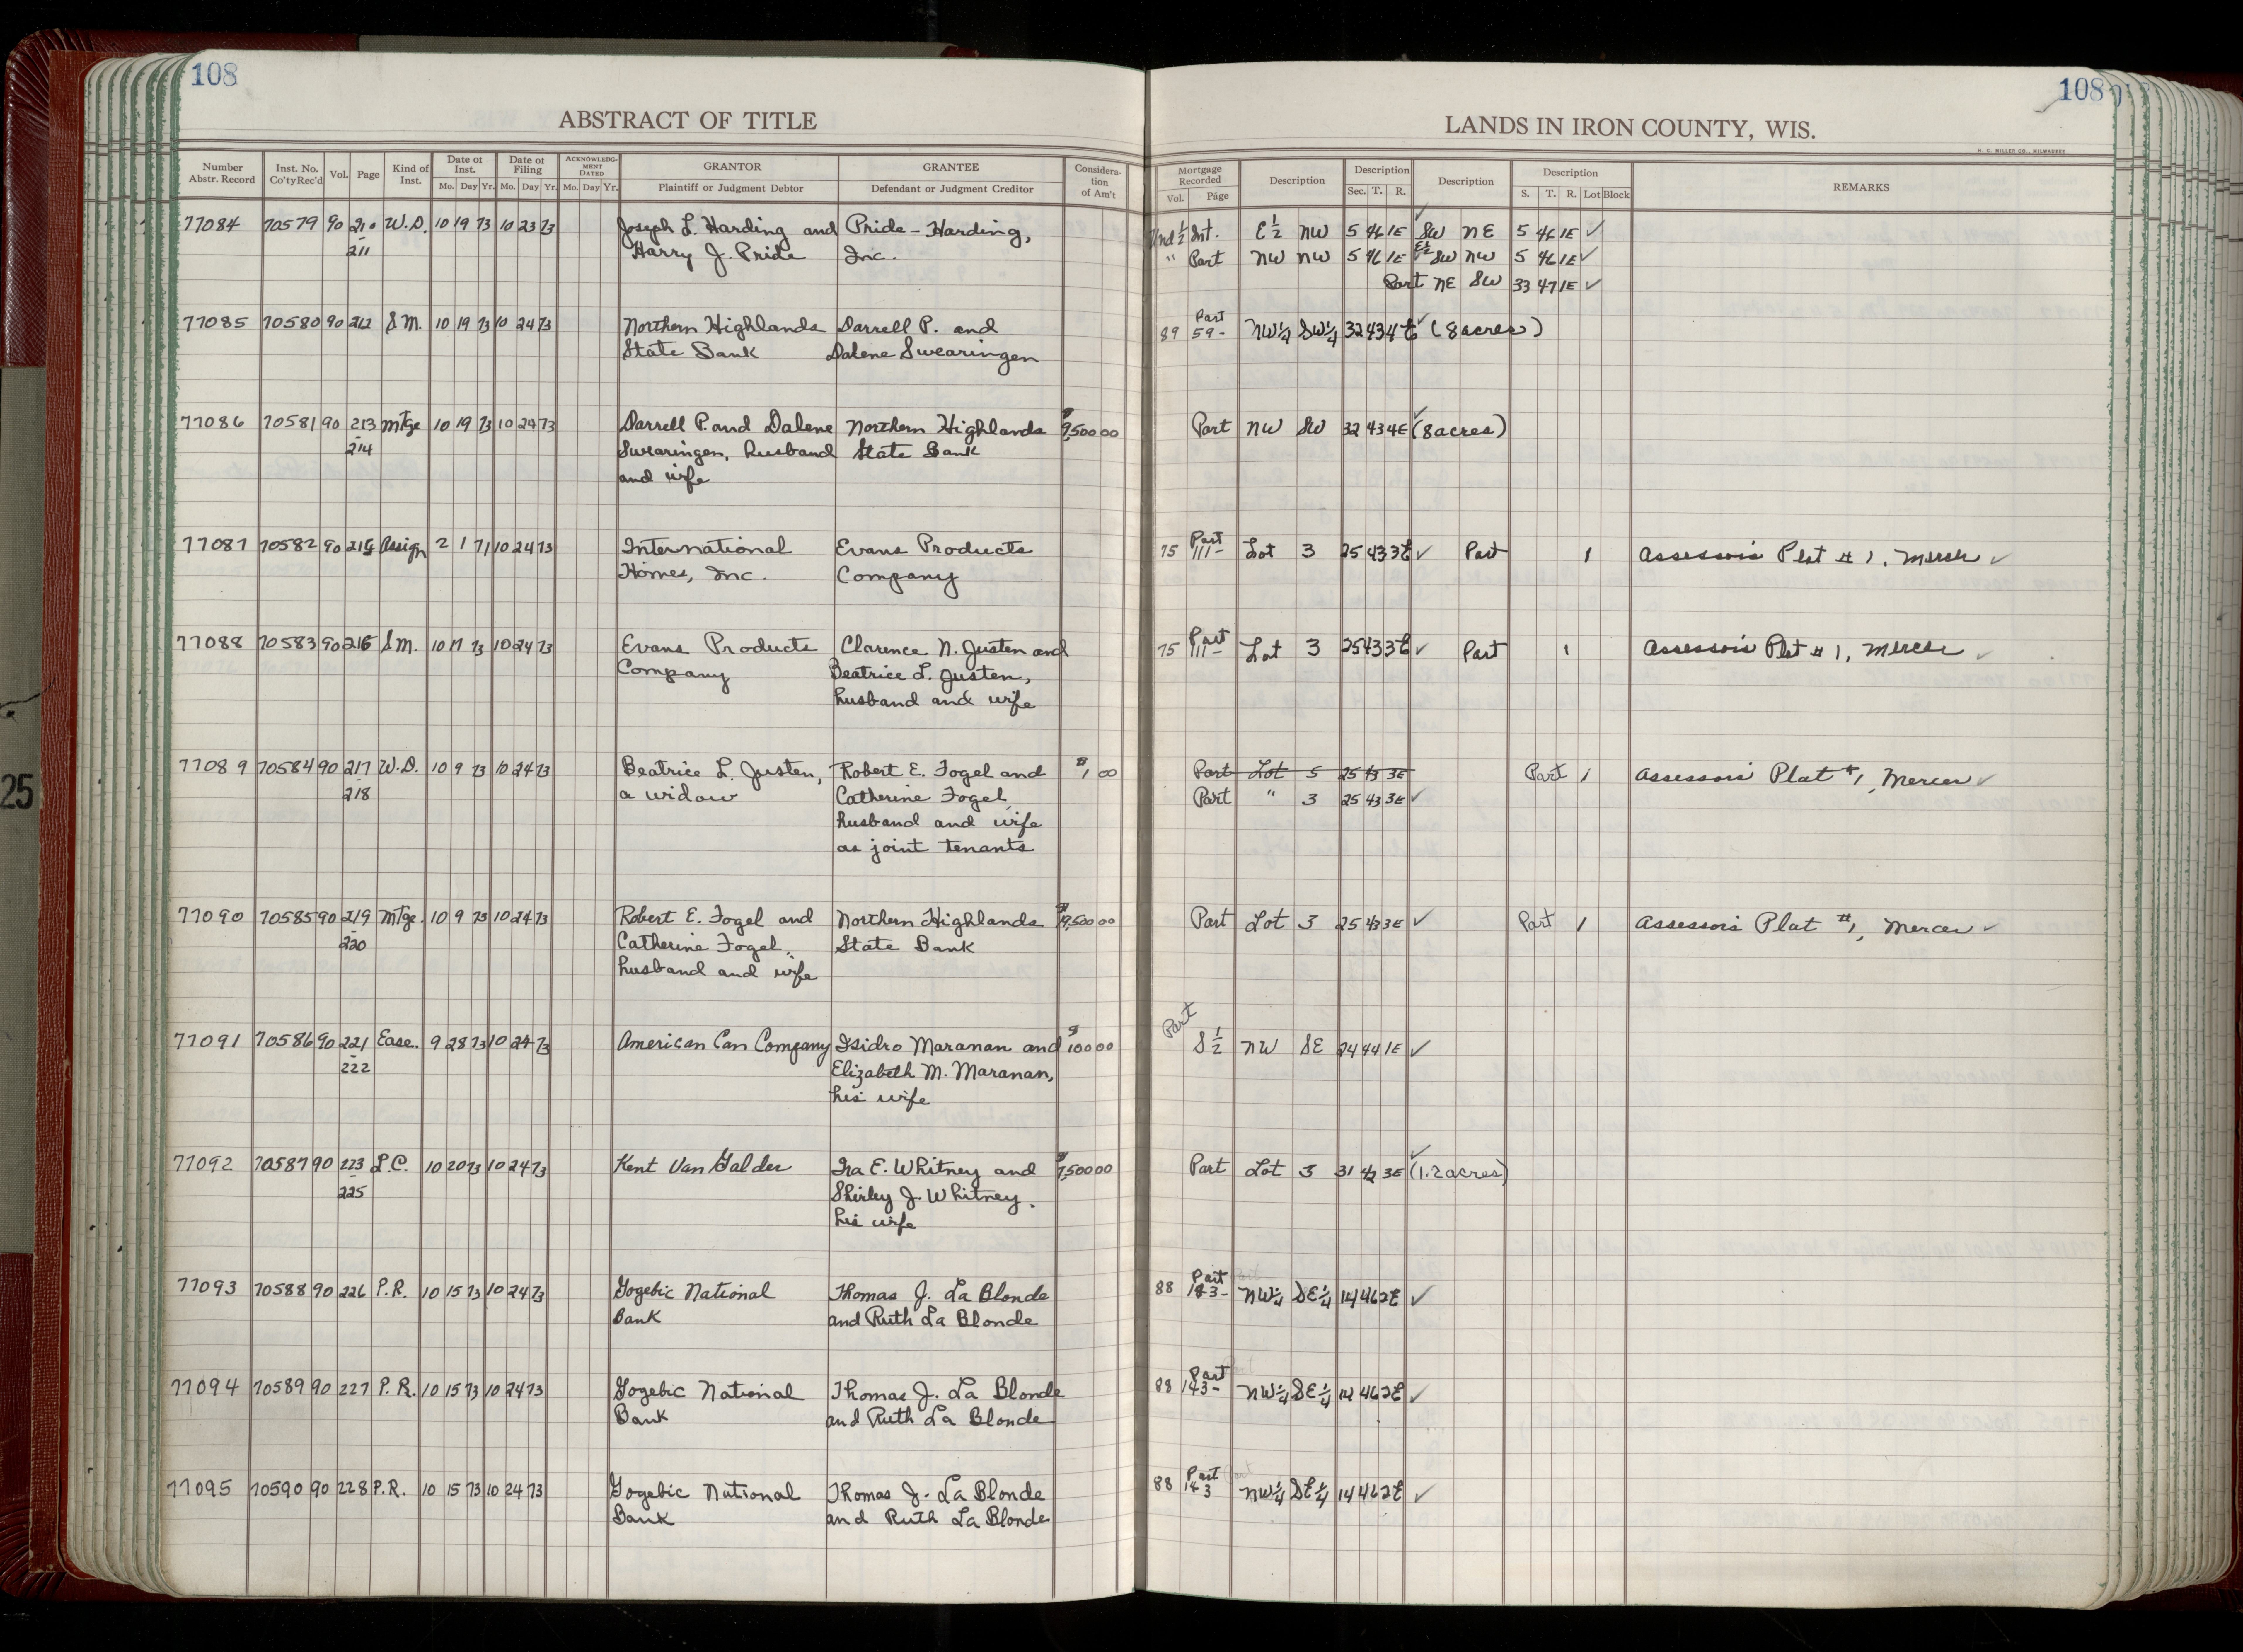 108
108
ABSTRACT OF TITLE
LANDS IN IRON COUNTY, WIS.
H. C. MILLER CO., MILWAUKEE
Number Abstr. Record Inst. No. Co'ty Rec'd Vol. Page Kind of Inst. Date of Inst. Mo. Day Yr. Date of Filing Mo. Day Yr. ACKNOWLEDGMENT DATED Mo. Day Yr. GRANTOR Plaintiff or Judgment Debtor GRANTEE Defendant or Judgment Creditor Consideration of Am't Mortgage Recorded Vol. Page Description Description Sec. T. R. Description Description S. T. R. Lot Block REMARKS
77084 70579 90 210 W.D. 10 19 73 10 23 73 Joseph L. Harding and Pride - Harding, Und ½ Int. E ½ NW 5 46 1E ✓ SW NE 5 46 1E ✓
- 211 Harry J. Pride Inc. " Part NW NW 5 46 1E E½ SW NW 5 46 1E ✓
Part NE SW 33 47 1E ✓
77085 70580 90 212 S.M. 10 19 73 10 24 73 Northern Highlands Darrell P. and 89 Part 59- NW¼ SW¼ 32 43 4E ✓ (8 acres)
State Bank Dalene Swearingen
77086 70581 90 213 Mtge 10 19 73 10 24 73 Darrell P. and Dalene Northern Highlands $9,500 00 Part NW SW 32 43 4E ✓ (8 acres)
- 214 Swearingen, husband State Bank
and wife
77087 70582 90 215 Assign 2 1 71 10 24 73 International Evans Products 75 Part 111- Lot 3 25 43 3E ✓ Part 1 Assessor's Plat # 1, Mercer ✓
Homes, Inc. Company
77088 70583 90 216 S.M. 10 17 73 10 24 73 Evans Products Clarence N. Justen and 75 Part 111- Lot 3 25 43 3E ✓ Part 1 Assessor's Plat # 1, Mercer ✓
Company Beatrice L. Justen,
husband and wife
77089 70584 90 217 W.D. 10 9 73 10 24 73 Beatrice L. Justen, Robert E. Fogel and $1 00 Part Lot 5 25 43 3E Part 1 Assessor's Plat #1, Mercer ✓
- 218 a widow Catherine Fogel, Part " 3 25 43 3E ✓
husband and wife
as joint tenants
77090 70585 90 219 Mtge. 10 9 73 10 24 73 Robert E. Fogel and Northern Highlands Part Lot 3 25 43 3E ✓ Part 1 Assessor's Plat #1, Mercer ✓
- 220 Catherine Fogel, State Bank
husband and wife
77091 70586 90 221 Ease. 9 28 73 10 24 73 American Can Company Isidro Maranan and $100 00 Part S ½ NW SE 24 44 1E ✓
- 222 Elizabeth M. Maranan,
his wife
77092 70587 90 223 L.C. 10 20 73 10 24 73 Kent Van Galder Ira E. Whitney and $7,500 00 Part Lot 3 31 42 3E ✓ (1.2 acres)
- 225 Shirley J. Whitney,
his wife
77093 70588 90 226 P.R. 10 15 73 10 24 73 Gogebic National Thomas J. La Blonde 88 Part 143- NW¼ SE¼ 14 46 2E ✓
Bank and Ruth La Blonde
77094 70589 90 227 P.R. 10 15 73 10 24 73 Gogebic National Thomas J. La Blonde 88 Part 143- NW¼ SE¼ 14 46 2E ✓
Bank and Ruth La Blonde
77095 70590 90 228 P.R. 10 15 73 10 24 73 Gogebic National Thomas J. La Blonde 88 Part 143 NW¼ SE¼ 14 46 2E ✓
Bank and Ruth La Blonde
25